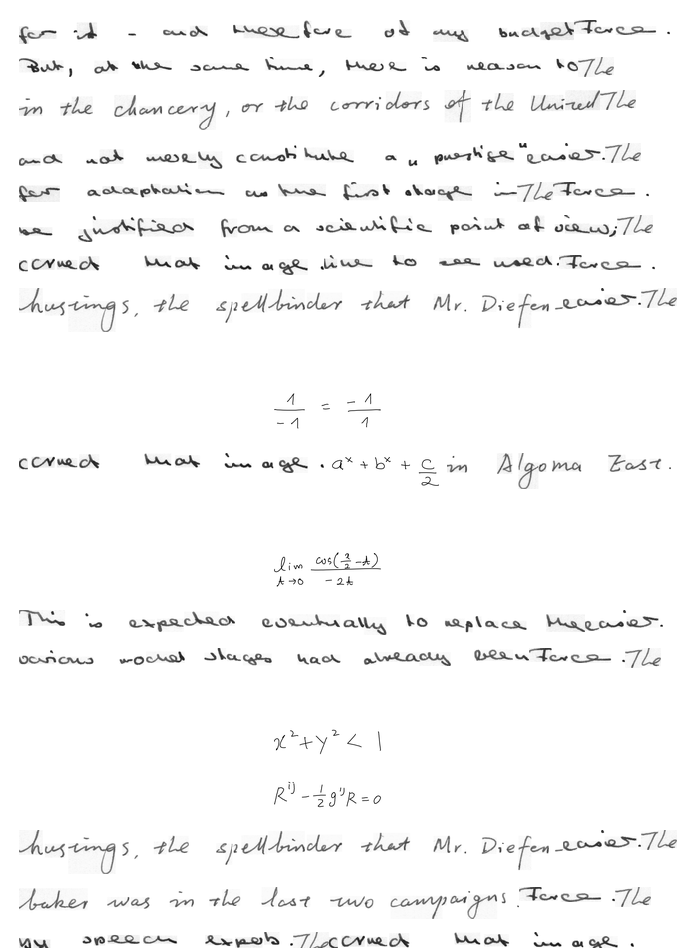 for it - and therefore of any budget Force.
But, at the same time, there is reason to The
in the chancery, or the corridors of the United The
and not merely constitute a "prestige" easier. The
for adaptation as the first stage in The Force.
be justified from a scientific point of view; The
cerned that image line to see used. Force.
hustings, the spellbinder that Mr. Diefen- easier. The
\frac{1}{-1} = \frac{-1}{1}
cerned that image. a^x + b^x + \frac{c}{2} in Algoma East.
\lim_{t \to 0} \frac{\cos(\frac{3}{2} - t)}{-2t}
This is expected eventually to replace the easier.
various rocket stages had already been Force. The
x^2 + y^2 < 1
R^{ij} - \frac{1}{2} g^{ij} R = 0
hustings, the spellbinder that Mr. Diefen- easier. The
baker was in the last two campaigns. Force. The
by speech expob. The cerned that image.